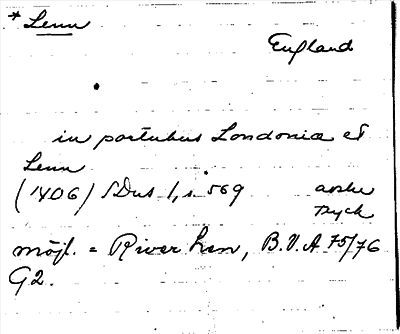 * Lenn
England
in portubus Londonie et
Lenn
(1406) SDns 1, s. 569 avskr
tryck
möjl. = River Len, B.V.A 75/76
G2.